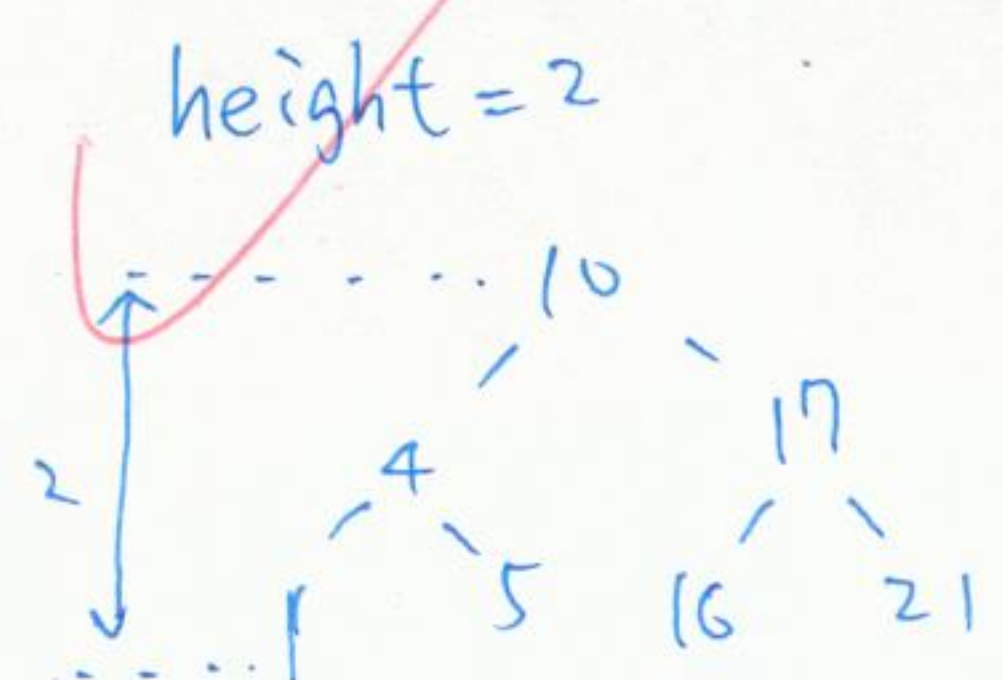 height = 2
10
4 17
2
1 5 16 21